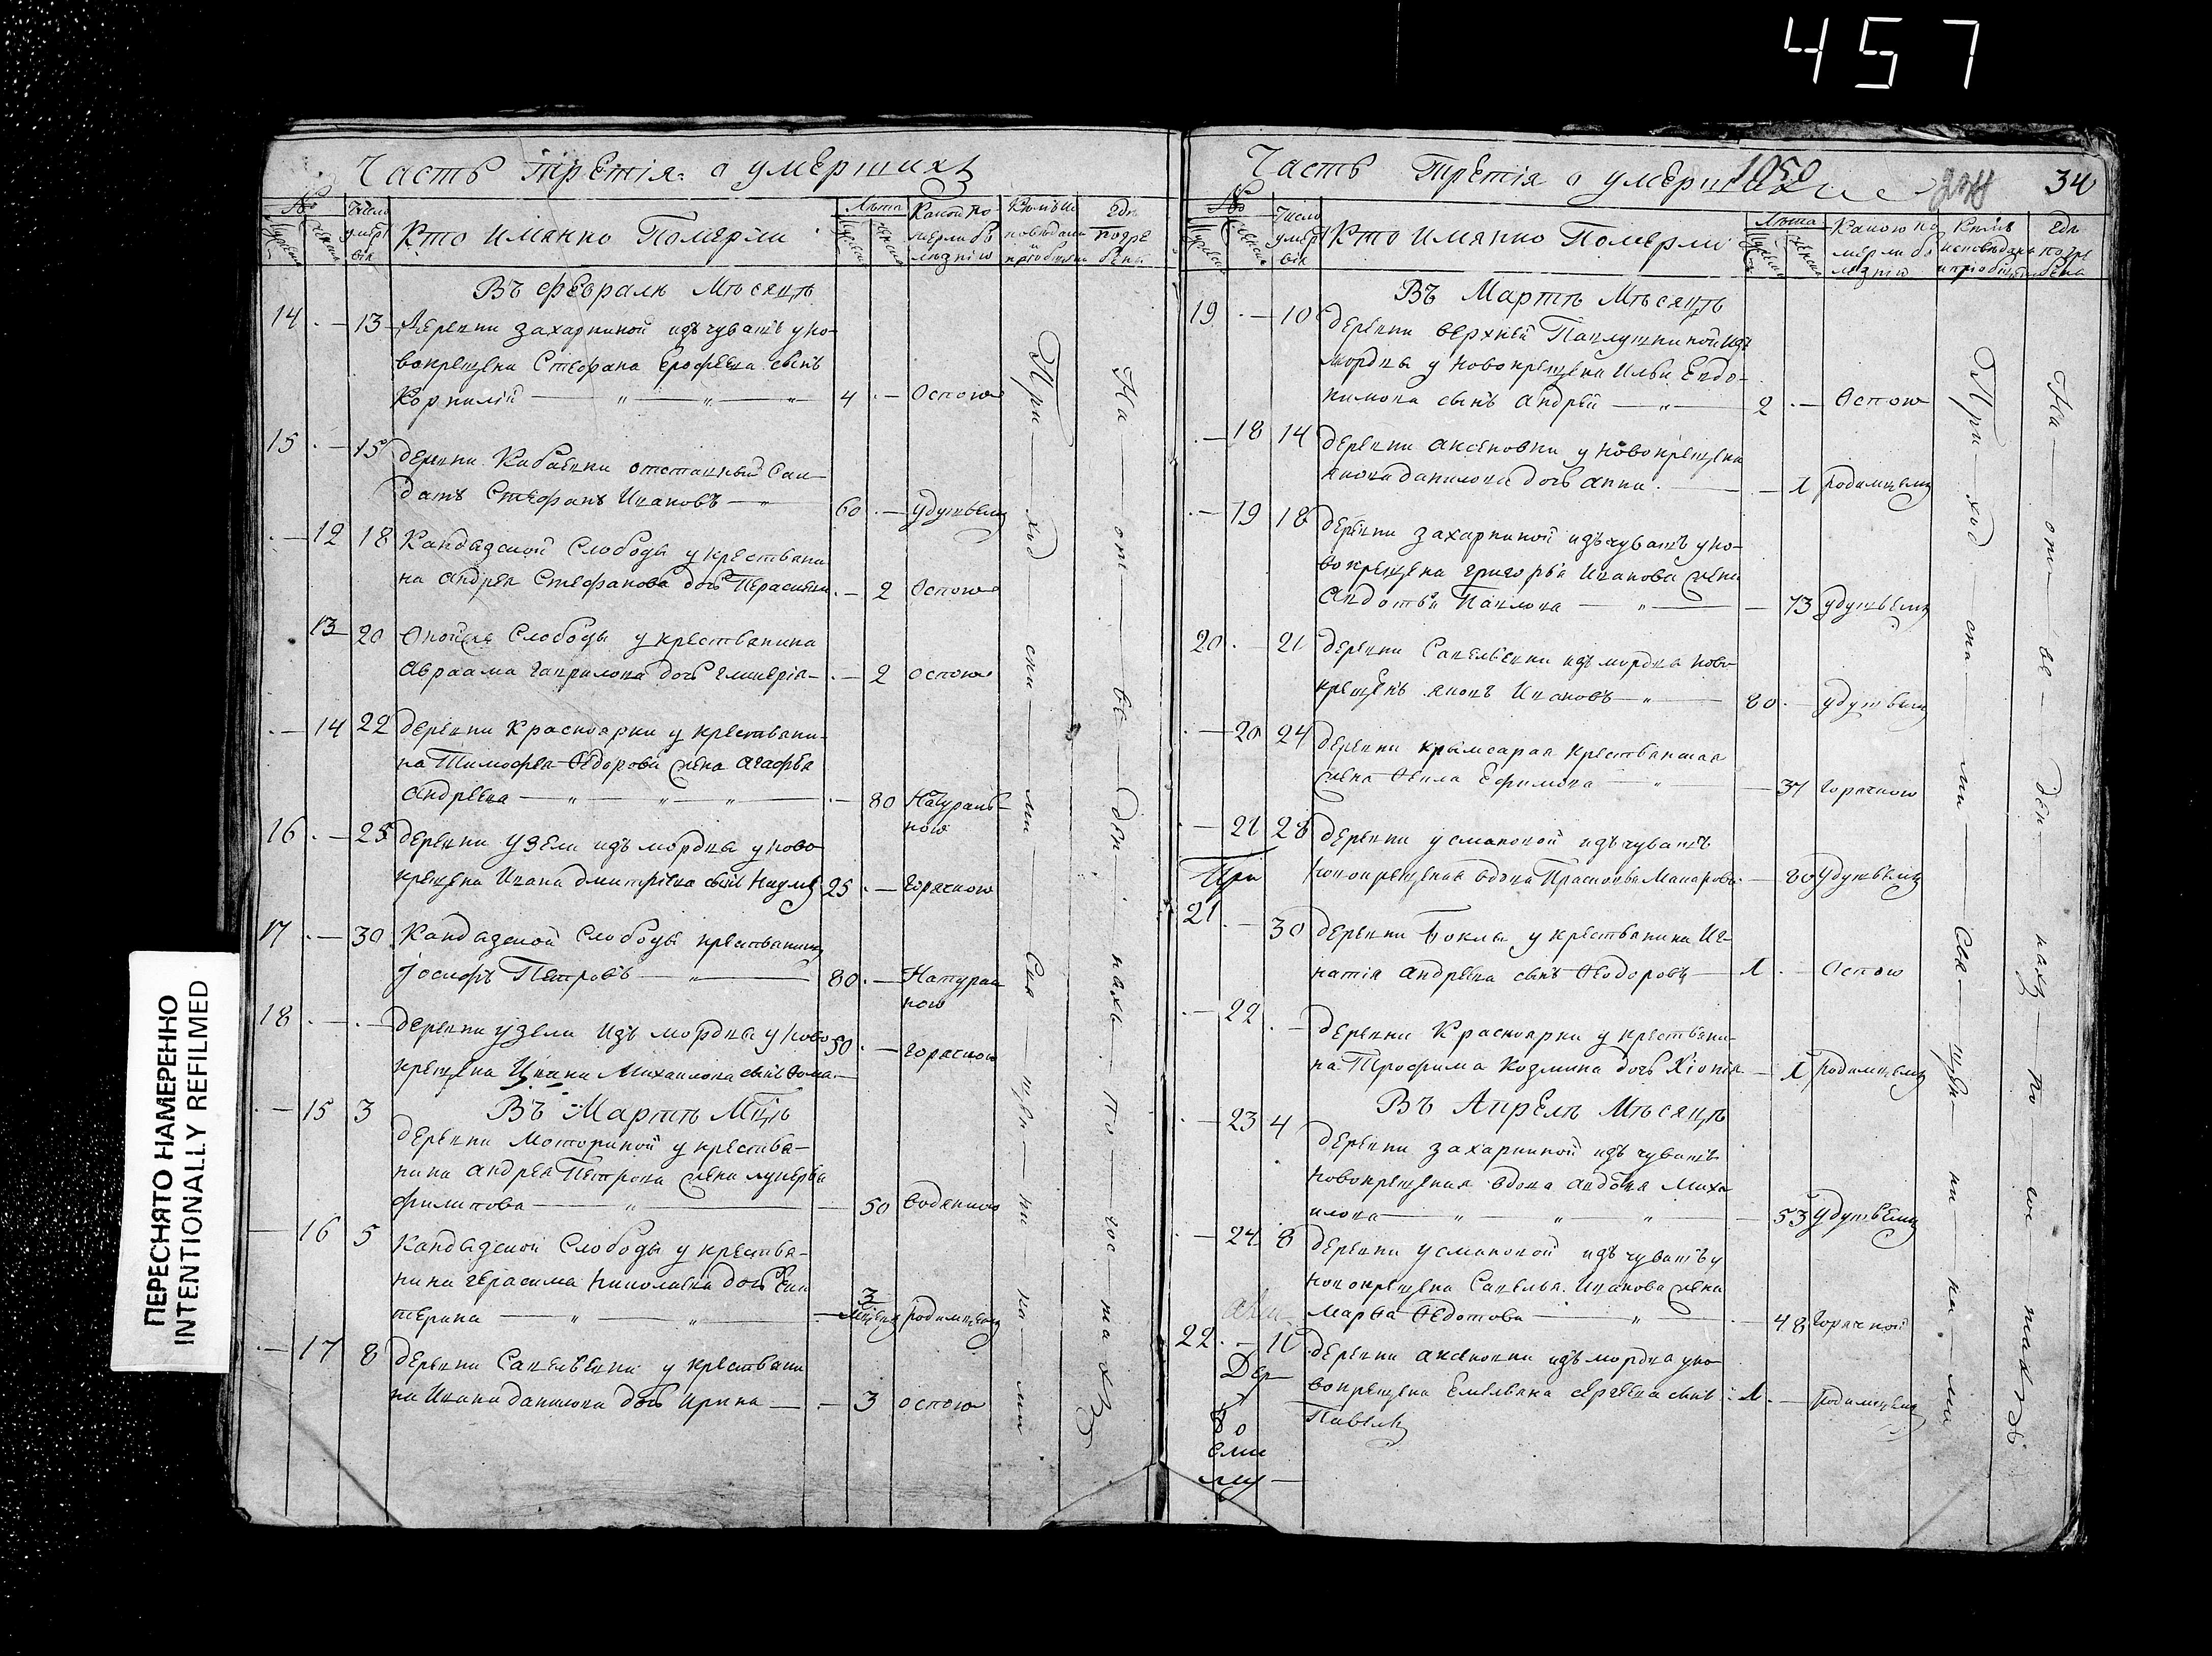 457
Часть третія о умершихъ
№
мужеска
женска
Число умерт вія
Кто имянно Померли
Лѣта
мужеска
женска
Какой по мерли бо лѣзнію
Кѣмъ ис повѣданы и пріобщены
Гдѣ погре бены
Въ февралѣ Мѣсяцѣ
14 . — 13 Деревни захаркиной изъ чувашъ у но-
вокрещена Стефана Ерофѣева сынъ
Корнилій — „ — „ — „ 4 . — Оспою
15 . — 15 деревни Кабаевки отставный Сал-
датъ Стефанъ Ивановъ — „ 60 . — удушьемъ
. — 12 18 Кандызской Слободы у крестьяни
на андрея Стефанова дочь Парасковья . — 2 Оспою
13 20 Оной же Слободы у крестьянина
Авраама гаврилова дочь гликерія . — 2 оспою
. — 14 22 деревни Красноярки у крестьяни-
на Тимофея Ѳедорова жена агафья
андреева — „ — „ — „ . — 80 Натураль-
ною
16 . — 25 деревни узели изъ мордвы у ново
крещена Ивана дмитріева сынъ Наумъ 25 . — горячкою
17 . — 30 Кандызской Слободы крестьянинъ
Іосифъ Петровъ — „ 80 . — Натураль
ною
18 . — . — деревни узели изъ мордвы у ново
крещена Ивана Михаилова сынъ Ѳома 50 . — горячкою
Въ Мартѣ Мцѣ
. — 15 3 деревни Моториной у крестья-
нина андрея Петрова жена лукерья
филипова — „ — 50 водяною
— 16 5 Кандызской Слободы у крестья-
нина герасима николаева дочь Ека
терина — „ — „ — 3 мѣсяца родимцемъ
. — 17 8 деревни Савельевки у крестьяни
на Ивана данилова дочь ирина — . — 3 оспою
При — ход — ски — ми — Свя — щен — ни — ка — ми
На — от — ве — ден — ныхъ — по — гос — та — хъ
Часть Третія о умерших
1050
34
№
мужеска
женска
Число умерт вія
Кто имянно Померли
Лѣта
мужеска
женска
Какою по мерли бо лѣзнію
Кѣмъ исповѣданы и пріобщены
Гдѣ погре бены
Въ Мартѣ Мѣсяцѣ
19 . — 10 деревни верхней Павлушкиной изъ
мордвы у новокрещена Ильи Евдо-
кимова сынъ андрей — „ — 2 . — Оспою
. — 18 14 деревни аксеновки у новокрещена
якова данилова дочь анна . — — 1 родимцемъ
. — 19 18 деревни захаркиной изъ чувашъ у но-
вокрещена григорья Иванова жена
авдотья Павлова — „ — — 73 удушьемъ
20 . — 21 деревни Савельевки изъ мордвы ново
крещенъ яковъ Ивановъ — „ — 80 . — удушьемъ
. — 20 24 деревни крымсарая крестьянская
жена Ѳекла Ефимова — „ — 37 горячкою
. — 21 28 деревни усмановой изъ чувашъ
новокрещеная вдова Прасковья Макарова . — 80 удушьемъ
При
21 . — 30 деревни Боклы у крестьянина Иг-
натія андреева сынъ Ѳеодоровъ — 1 . — Оспою
. — 22 . — деревни Красноярки у крестьяни-
на Трофима Козмина дочь Хіонія — 1 родимцемъ
Въ Апрелѣ Мѣсяцѣ
. — 23 4 деревни захаркиной изъ чувашъ
новокрещеная вдова авдотья Миха
илова — „ — „ — „ — 53 удушьемъ
. — 24 8 деревни усмановой изъ чувашъ у
новокрещена Савелья Иванова жена
марѳа Ѳедотова — „ — . — 48 горячкой
22 . — 10 деревни аксеновки изъ мордвы у но-
вокрещена Емельяна сергеева сынъ 1 . — родимцемъ
Павелъ
При — ход — ски — ми — Свя — щен — ни — ка — ми
На — от — ве — ден — ныхъ — по — гос — тахъ
ПЕРЕСНЯТО НАМЕРЕННО
INTENTIONALLY REFILMED